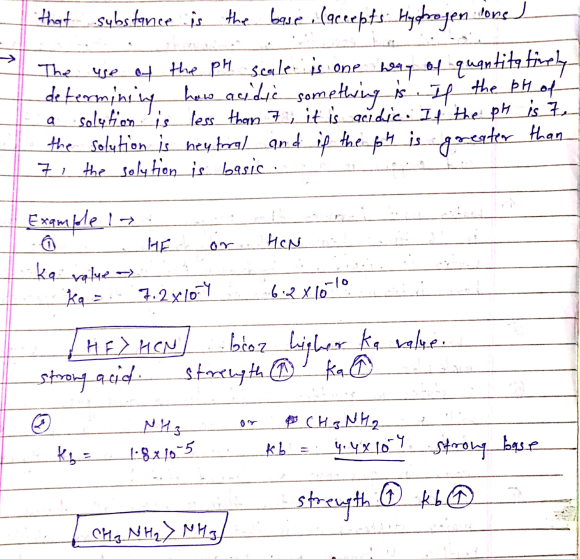 that substance is the base. (accepts Hydrogen ions)
→ The use of the pH scale is one way of quantitatively
determining how acidic something is. If the pH of
a solution is less than 7, it is acidic. If the pH is 7,
the solution is neutral and if the pH is greater than
7, the solution is basic.
Example 1 →
① HF or HCN
ka value →
ka = 7.2x10⁻⁴ 6.2 x 10⁻¹⁰
HF > HCN bcoz higher ka value.
strong acid. strength ↑ ka ↑
② NH₃ or CH₃NH₂
kb = 1.8x10⁻⁵ kb = 4.4x10⁻⁴ strong base
strength ↑ kb ↑
CH₃NH₂ > NH₃